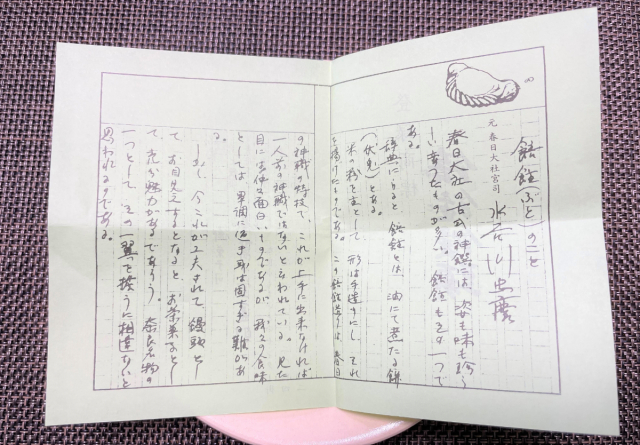 餢飳(ぶと)のこと
元 春日大社宮司 水谷川忠麿
春日大社の古式の神饌には、姿も味も珍ら
しい変ったものが多い。餢飳もその一つで
ある。
辞典によると餢飳とは、油にて煮たる餅
(伏兎)とある。
米の粉を主として形は手造りにし、それ
を揚げたものである。この餢飳造りは、春日
の神職の特技で、これが上手に出来なければ
一人前の神職ではないと云われている。見た
目には仲々面白いものであるが、我々の食味
としては単調に過ぎ、且つ固すぎる難があ
る。
しかし今これが工夫されて饅頭とし
て、お目見えするとなると、お茶菓子とし
て、充分魅力があるであろう。奈良名物の
一つとして、その一翼を担うに相違ないと
思われるのである。